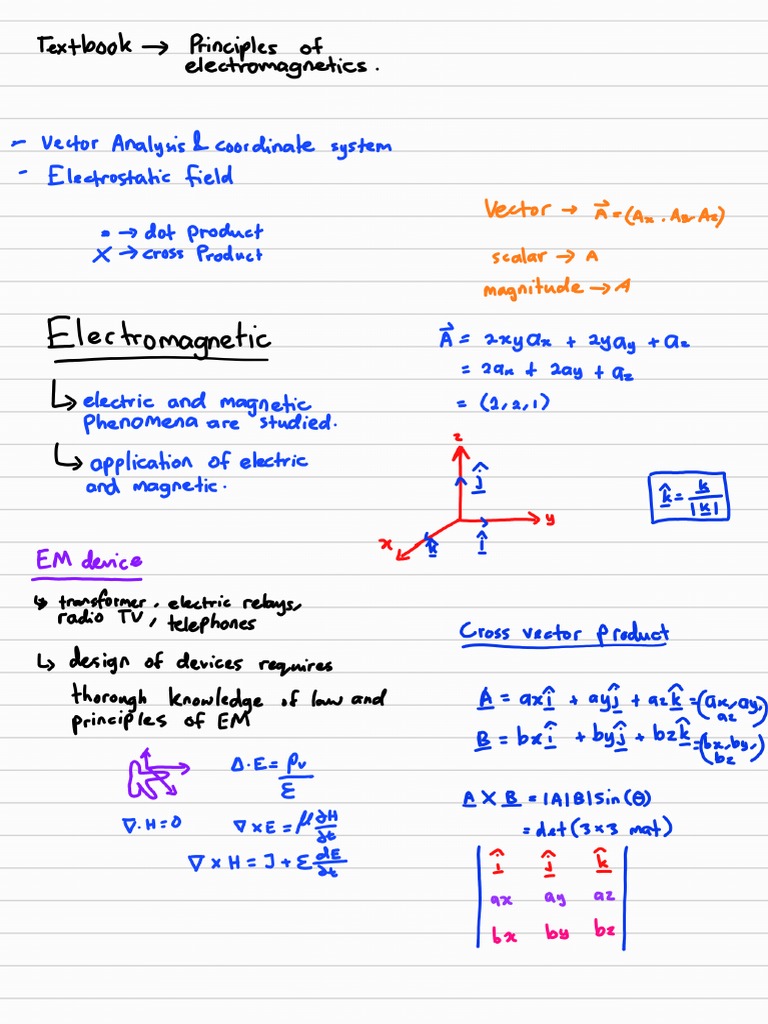 Textbook → Principles of
electromagnetics.
- Vector Analysis & coordinate system
- Electrostatic field
• → dot product
× → cross Product
Vector → A⃗ = (Ax . Az . Az)
scalar → A
magnitude → A
Electromagnetic
↳ electric and magnetic
phenomena are studied.
↳ application of electric
and magnetic.
A⃗ = 2xyax + 2yay + az
= 2ax + 2ay + az
= (2, 2, 1)
z
ĵ
y
x
k̂
î
k̂ = k / |k|
EM device
↳ transformer, electric relays,
radio TV, telephones
↳ design of devices requires
thorough knowledge of law and
principles of EM
Δ·E = ρv / ε
∇·H = 0
∇×E = μ ∂H/∂t
∇×H = J + ε dE/∂t
Cross vector product
A = axî + ayĵ + azk̂ = (ax, ay, az)
B = bxî + byĵ + bzk̂ = (bx, by, bz)
A × B = |A||B|sin(θ)
= det (3×3 mat)
î ĵ k̂
ax ay az
bx by bz